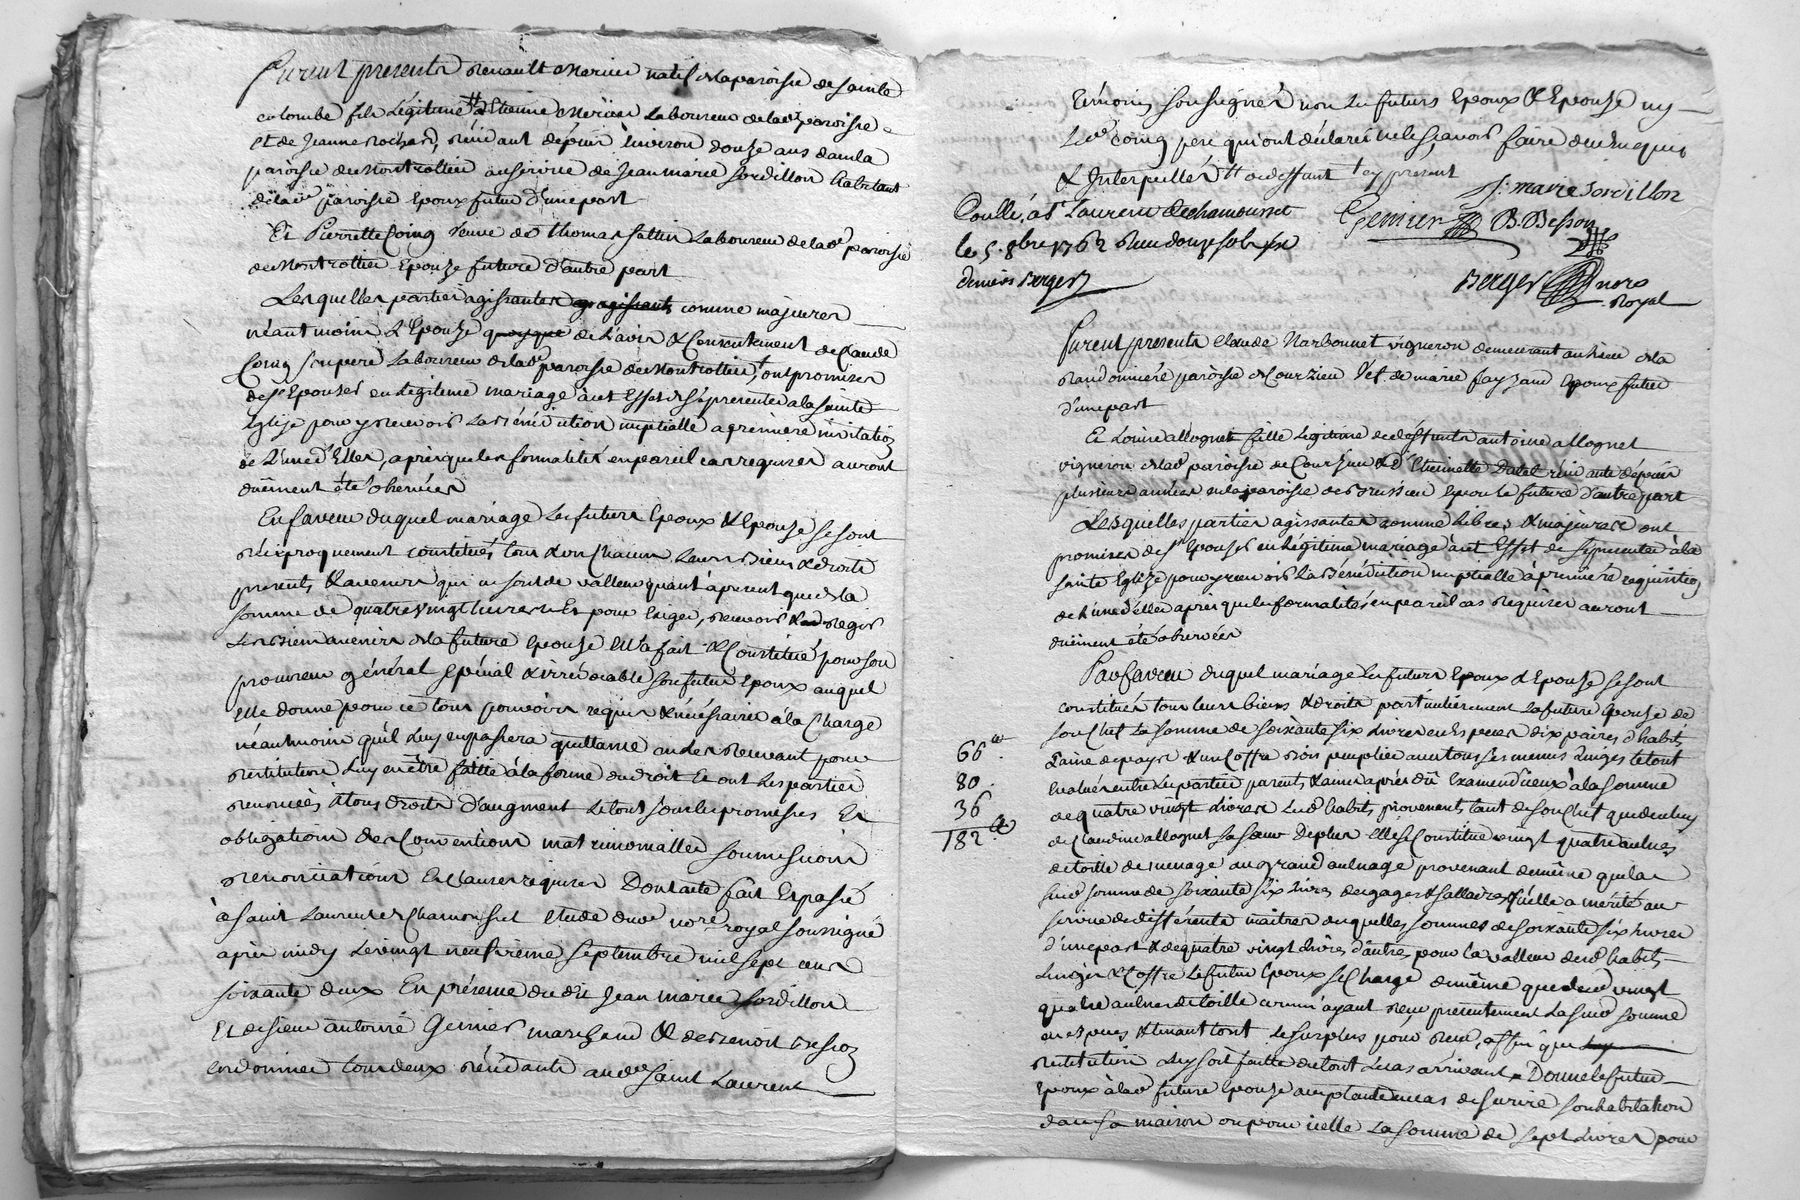 furent presents Renault Merieu natif de la paroisse de Sainte
Colombe fils Légitime # d'Etienne Merieu Laboureur de lade paroisse
et de Jeanne Rochard, résidant dépuis environ douze ans dans la
paroisse de Montrottier au service de Jean marie Sordillon habitant
de lade paroisse Epoux futur d'une part
Et Pierrette Coing veuve de Thomas Laboureur de lade paroisse
de Montrottier Epouze future d'autre part
Lesquelles parties agissantes comme majeures
néantmoins L'Epouze de L'avis & Consentement de Claude
Coing son pere Laboureur de lade paroisse de Montrottier, ont promises
de s'Epouser en Légitime mariage à cet Effet de se présenter a la Sainte
Eglize pour y recevoir La Bénédiction nuptialle a premiere invitation
de L'une d'Elles, après que les formalités en pareil cas requises auront
duëment été observées
En faveur duquel mariage Les futurs Epoux & Epouze se sont
réciproquement constitués tous & un chacun Leurs Biens & droits
presents & avenirs qui ne sont de valleur quant à present que de la
somme de quatre vingt Livres Et pour Exiger, recevoir & Regir
Les Biens avenirs de la future Epouze Elle a fait & Constitué pour son
procureur général spécial & irrévocable son futur Epoux auquel
Elle donne pour ce tous pouvoirs requis & nécéssaires à la charge
néantmoins qu'il Luy en passera quittance en les recevant pour
restitution Luy en être faitte à la forme du droit Et ont Les parties
renoncées à tous droits d'augment Le tout sous les promésses Et
obligations des Conventions matrimonialles soumissions
renonciations Et clauses requises Dont acte fait Et passé
à Saint Laurent de Chamousset etude dud. nore royal soussigné
après midy Le vingt neufvieme septembre mil sept cent
soixante deux En présence dudit Jean marie Sordillon
Et de sieur antoine Gemier marchand & de Benoit Besson
cordonnier tous deux résidants aud. Saint Laurent
témoins soussignés non Les futurs Epoux & Epouze ny
Led. Coing pere qui ont déclarés ne le sçavoir faire de ce Enquis
& Interpellés # a deffunt + cy present
J. marie Sordillon
Gemier B. Besson
Conllé, à St Laurent de Chamousset
le 5. 8bre 1762 Reçu douze sols six
deniers Berger
Berger nore
Royal
furent presents Claude Narbonnet vigneron demeurant au lieu de la
Randonniere paroisse de Courzieu Vef de marie fayzand Epoux futur
d'une part
Et Louise allognet fille Légitime de déffunts antoine allognet
vigneron de lade paroisse de Courzieu & d'Etiennette Dalet résidante dépuis
plusieurs années en la paroisse de Brussieu Epouze future d'autre part
Lesquelles parties agissantes comme Libres & majeures ont
promises de s'Epouser en Légitime mariage à cet Effet de se présenter à la
Sainte Eglize pour y recevoir La Bénédiction nuptialle à premiére requisition
de L'une d'elles après que les formalités en pareil cas requises auront
duëment été observées
En faveur duquel mariage Les futurs Epoux & Epouze se sont
constitués tous leurs biens & droits particulièrement La future Epouze de
son Chef La somme de soixante six Livres en Especes dix paires d'habits
Laine de pays & un Coffre Bois peuplier avec tous ses menus Linges Le tout
Evalué entre Les parties parents & amis après dû Examen d'iceux à la somme
de quatre vingt Livres Lesd. habits provenants tant de son Chef que de celuy
de Claudine allognet sa sœur De plus Elle se Constitue vingt quatre aulnes
de toille de menage au grand aulnage provenant de même que la
susd. somme de soixante six Livres de gages & sallaires qu'elle a mérité au
service de différents maitres desquelles sommes de soixante six Livres
d'une part & de quatre vingt Livres d'autre, pour la valleur desd. habits
Linges & Coffre Le futur Epoux se Charge de même que desd. vingt
quatre aulnes de toille comm'ayant reçu présentement La susd. somme
en especes & tenant tout le surplus pour reçu, affin que
restitution Luy soit faitte du tout Le cas arrivant. Donne le futur
Epoux à lad. future Epouze acceptante en cas de survie son habitation
dans sa maison ou pour icelle La somme de sept Livres pour
66 tt
80.
36
182 tt